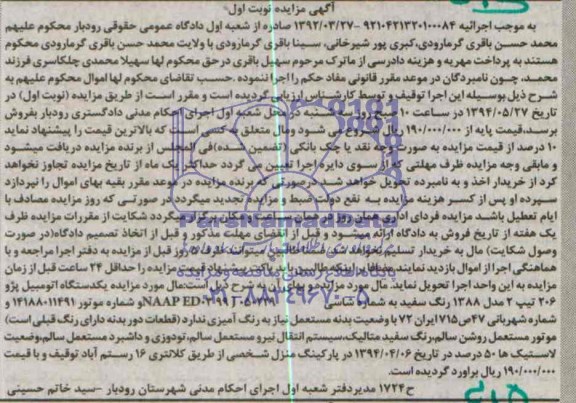 آگهی مزایده نوبت اول
به موجب اجرائیه ۹۲۱۰۴۲۱۳۲۰۱۰۰۰۸۴ –۱۳۹۲/۰۳/۲۷ صادره از شعبه اول دادگاه عمومی حقوقی رودبار محکوم علیهم
محمد حسن باقری گرمارودی،کبری پور شیرخانی، سینا باقری گرمارودی با ولایت محمد حسن باقری گرمارودی محکوم
هستند به پرداخت مهریه و هزینه دادرسی از ماترک مرحوم سهیل باقری در حق محکوم لها سهیلا محمدی چلکاسری فرزند
محمد، چون نامبردگان در موعد مقرر قانونی مفاد حکم را اجرا ننموده .حسب تقاضای محکوم لها اموال محکوم علیهم به
شرح ذیل بوسیله این اجرا توقیف و توسط کارشناس ارزیابی گردیده است و مقرر است از طریق مزایده (نوبت اول) در
تاریخ ۱۳۹۴/۰۵/۲۷ در ساعت ۱۰ صبح روز شنبه در محل شعبه اول اجرای احکام مدنی دادگستری رودبار بفروش
برسد.قیمت پایه از ۱۹۰/۰۰۰/۰۰۰ ریال شروع می شود ومال متعلق به کسی است که بالاترین قیمت را پیشنهاد نماید
۱۰ درصد از قیمت مزایده به صورت وجه نقد یا چک بانکی (تضمین شده)فی المجلس از برنده مزایده دریافت میشود
و مابقی وجه مزایده ظرف مهلتی که از سوی دایره اجرا تعیین می گردد حداکثر یک ماه از تاریخ مزایده تجاوز نخواهد
کرد از خریدار اخذ و به نامبرده تحویل خواهد شد درصورتی که برنده مزایده در موعد مقرر بقیه بهای اموال را نپردازد
سپرده او پس از کسر هزینه مزایده به نفع دولت ضبط و مزایده تجدید میگردد در صورتی که روز مزایده مصادف با
ایام تعطیل باشد مزایده فردای اداری همان روز در همان ساعت و مکان برگزار میگردد شکایت از مقررات مزایده ظرف
یک هفته از تاریخ فروش به دادگاه ارائه میشود و قبل از انقضای مهلت مذکور و قبل از اتخاذ تصمیم دادگاه(در صورت
وصول شکایت) مال به خریدار تسلیم نخواهد شد ضمنا طالبین میتوانند ظرف ۵ روز قبل از مزایده به دفتر اجرا مراجعه و با
هماهنگی اجرا از اموال بازدید نمایند مضافا اینکه طالبین پاکت پیشنهاد قیمت مزایده را حداقل ۲۴ ساعت قبل از زمان
مزایده به این واحد اجرا تحویل نماید. مال مورد مزایده و بهای آن به شرح ذیل است:مال مورد مزایده یکدستگاه اتومبیل پژو
۲۰۶ تیپ ۲ مدل ۱۳۸۸ رنگ سفید به شماره شاسی NAAP ED و شماره موتور ۱۴۱۸۸۰۱۱۴۹۱ و
شماره شهربانی ۴۷ص۷۱۵ ایران ۷۲ با وضعیت بدنه مستعمل نیاز به رنگ آمیزی ندارد (قطعات دور بدنه دارای رنگ قبلی است)
موتور مستعمل روشن سالم،رنگ سفید متالیک،سیستم انتقال نیرو مستعمل سالم،تودوزی و داشبرد مستعمل سالم،وضعیت
لاستیک ها ۵۰ درصد در تاریخ ۱۳۹۴/۰۴/۰۶ در پارکینگ منزل شخصی از طریق کلانتری ۱۶ رستم آباد توقیف و با قیمت
۱۹۰/۰۰۰/۰۰۰ ریال براورد گردیده است.
ح۱۷۲۴ مدیردفتر شعبه اول اجرای احکام مدنی شهرستان رودبار –سید خاتم حسینی
ParsNamadData
۰۲۱-۸۸۳۴۹۶۷۰-۵